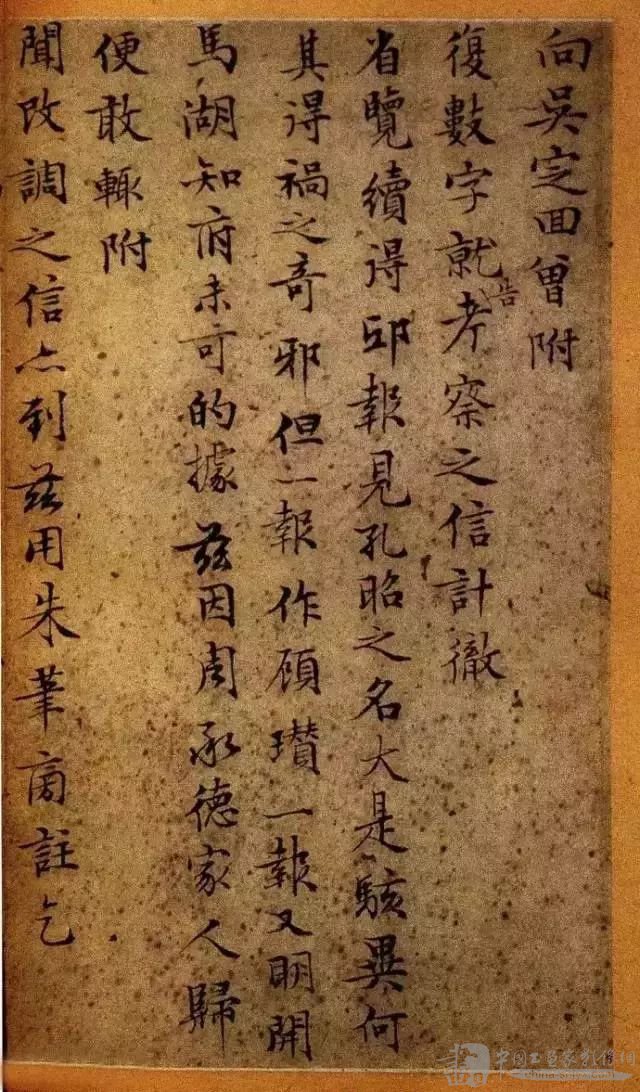 向吳定回曾附
復數字就告考察之信計徹
省覽續得邸報見孔昭之名大是駭異何
其得禍之奇邪但一報作頋瓚一報又明開
馬湖知府未可的據茲因周承德家人歸
便敢輒附
聞改調之信亦到茲用朱筆㫄註乞
中国工艺家引保網
www.china-shj.org